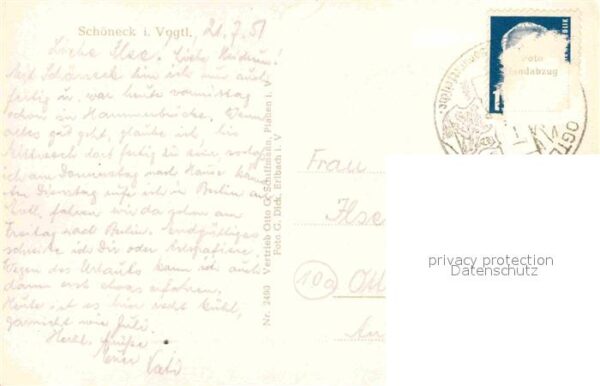 Schöneck i. Vogtl. 21.7.51
Liebe Ilse, Liebe Heidrun!
Mit Schöneck bin ich nun auch
fertig u. war heute vormittag
schon in Hammerbrücke. Wenn
alles gut geht, glaube ich, bis
Mittwoch dort fertig zu sein, sodaß
ich am Donnerstag nach Hause
Am Dienstag rufe ich in Berlin an
fahren wir da schon am
Freitag nach Berlin. Endgültiges
schreibe ich Dir oder telegrafiere.
Wegen des Urlaubs kann ich auch
dann erst etwas erfahren.
Heute ist es hier recht kühl,
garnicht wie Juli.
Herzl. Grüße
Euer Vati
Nr. 2490 Vertrieb Otto G. Schiffmann, Plauen i. V.
Foto G. Dick, Erlbach i. V
Foto
Handabzug
Frau
Ilse
(10a)
privacy protection
Datenschutz